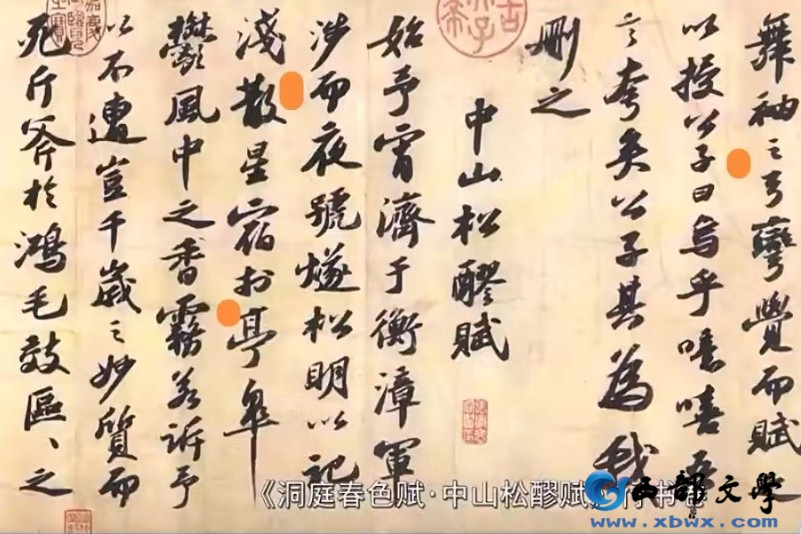 舞袖之弓彎覺而賦之
以授公子曰烏乎噫嘻吾
言夸矣公子其為我
刪之
中山松醪賦
始予宵濟于衡漳軍
涉而夜號燧松明以記
淺散星宿於亭皋
鬱風中之香霧若訴予
以不遭豈千歲之妙質而
死斤斧於鴻毛效區、之
《洞庭春色赋·中山松醪赋》行书卷
西部文学
www.xbwx.com